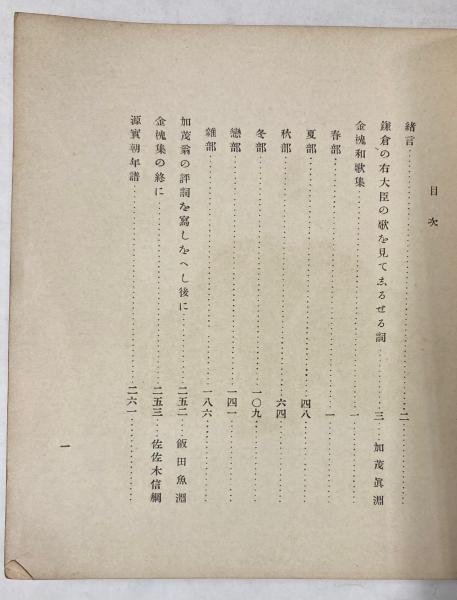 目次
緒言……二
鎌倉の右大臣の歌を見てゑるせる詞……三……加茂眞淵
金槐和歌集……一
春部……一
夏部……四八
秋部……六四
冬部……一〇九
戀部……一四一
雜部……一八六
加茂翁の評詞を寫しをへし後に……二五二……飯田魚淵
金槐集の終に……二五三……佐佐木信綱
源實朝年譜……二六一
一